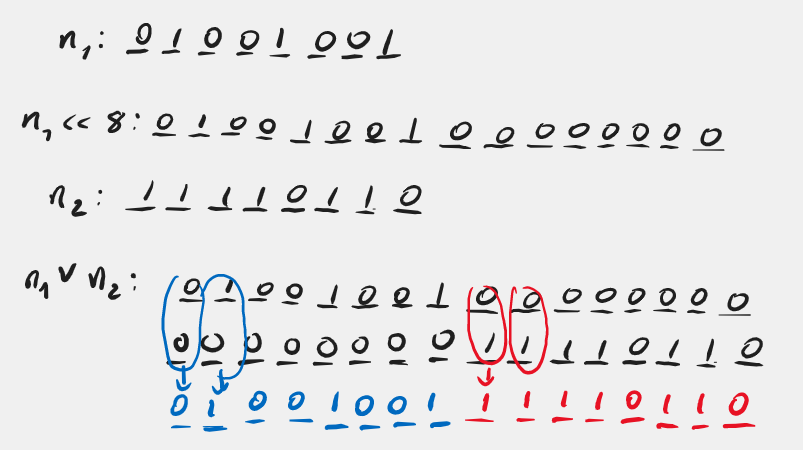 n₁: 0 1 0 0 1 0 0 1
n₁ << 8: 0 1 0 0 1 0 0 1 0 0 0 0 0 0 0 0
n₂: 1 1 1 1 0 1 1 0
n₁ ∨ n₂: 0 1 0 0 1 0 0 1 0 0 0 0 0 0 0 0
0 0 0 0 0 0 0 0 1 1 1 1 0 1 1 0
0 1 0 0 1 0 0 1 1 1 1 1 0 1 1 0